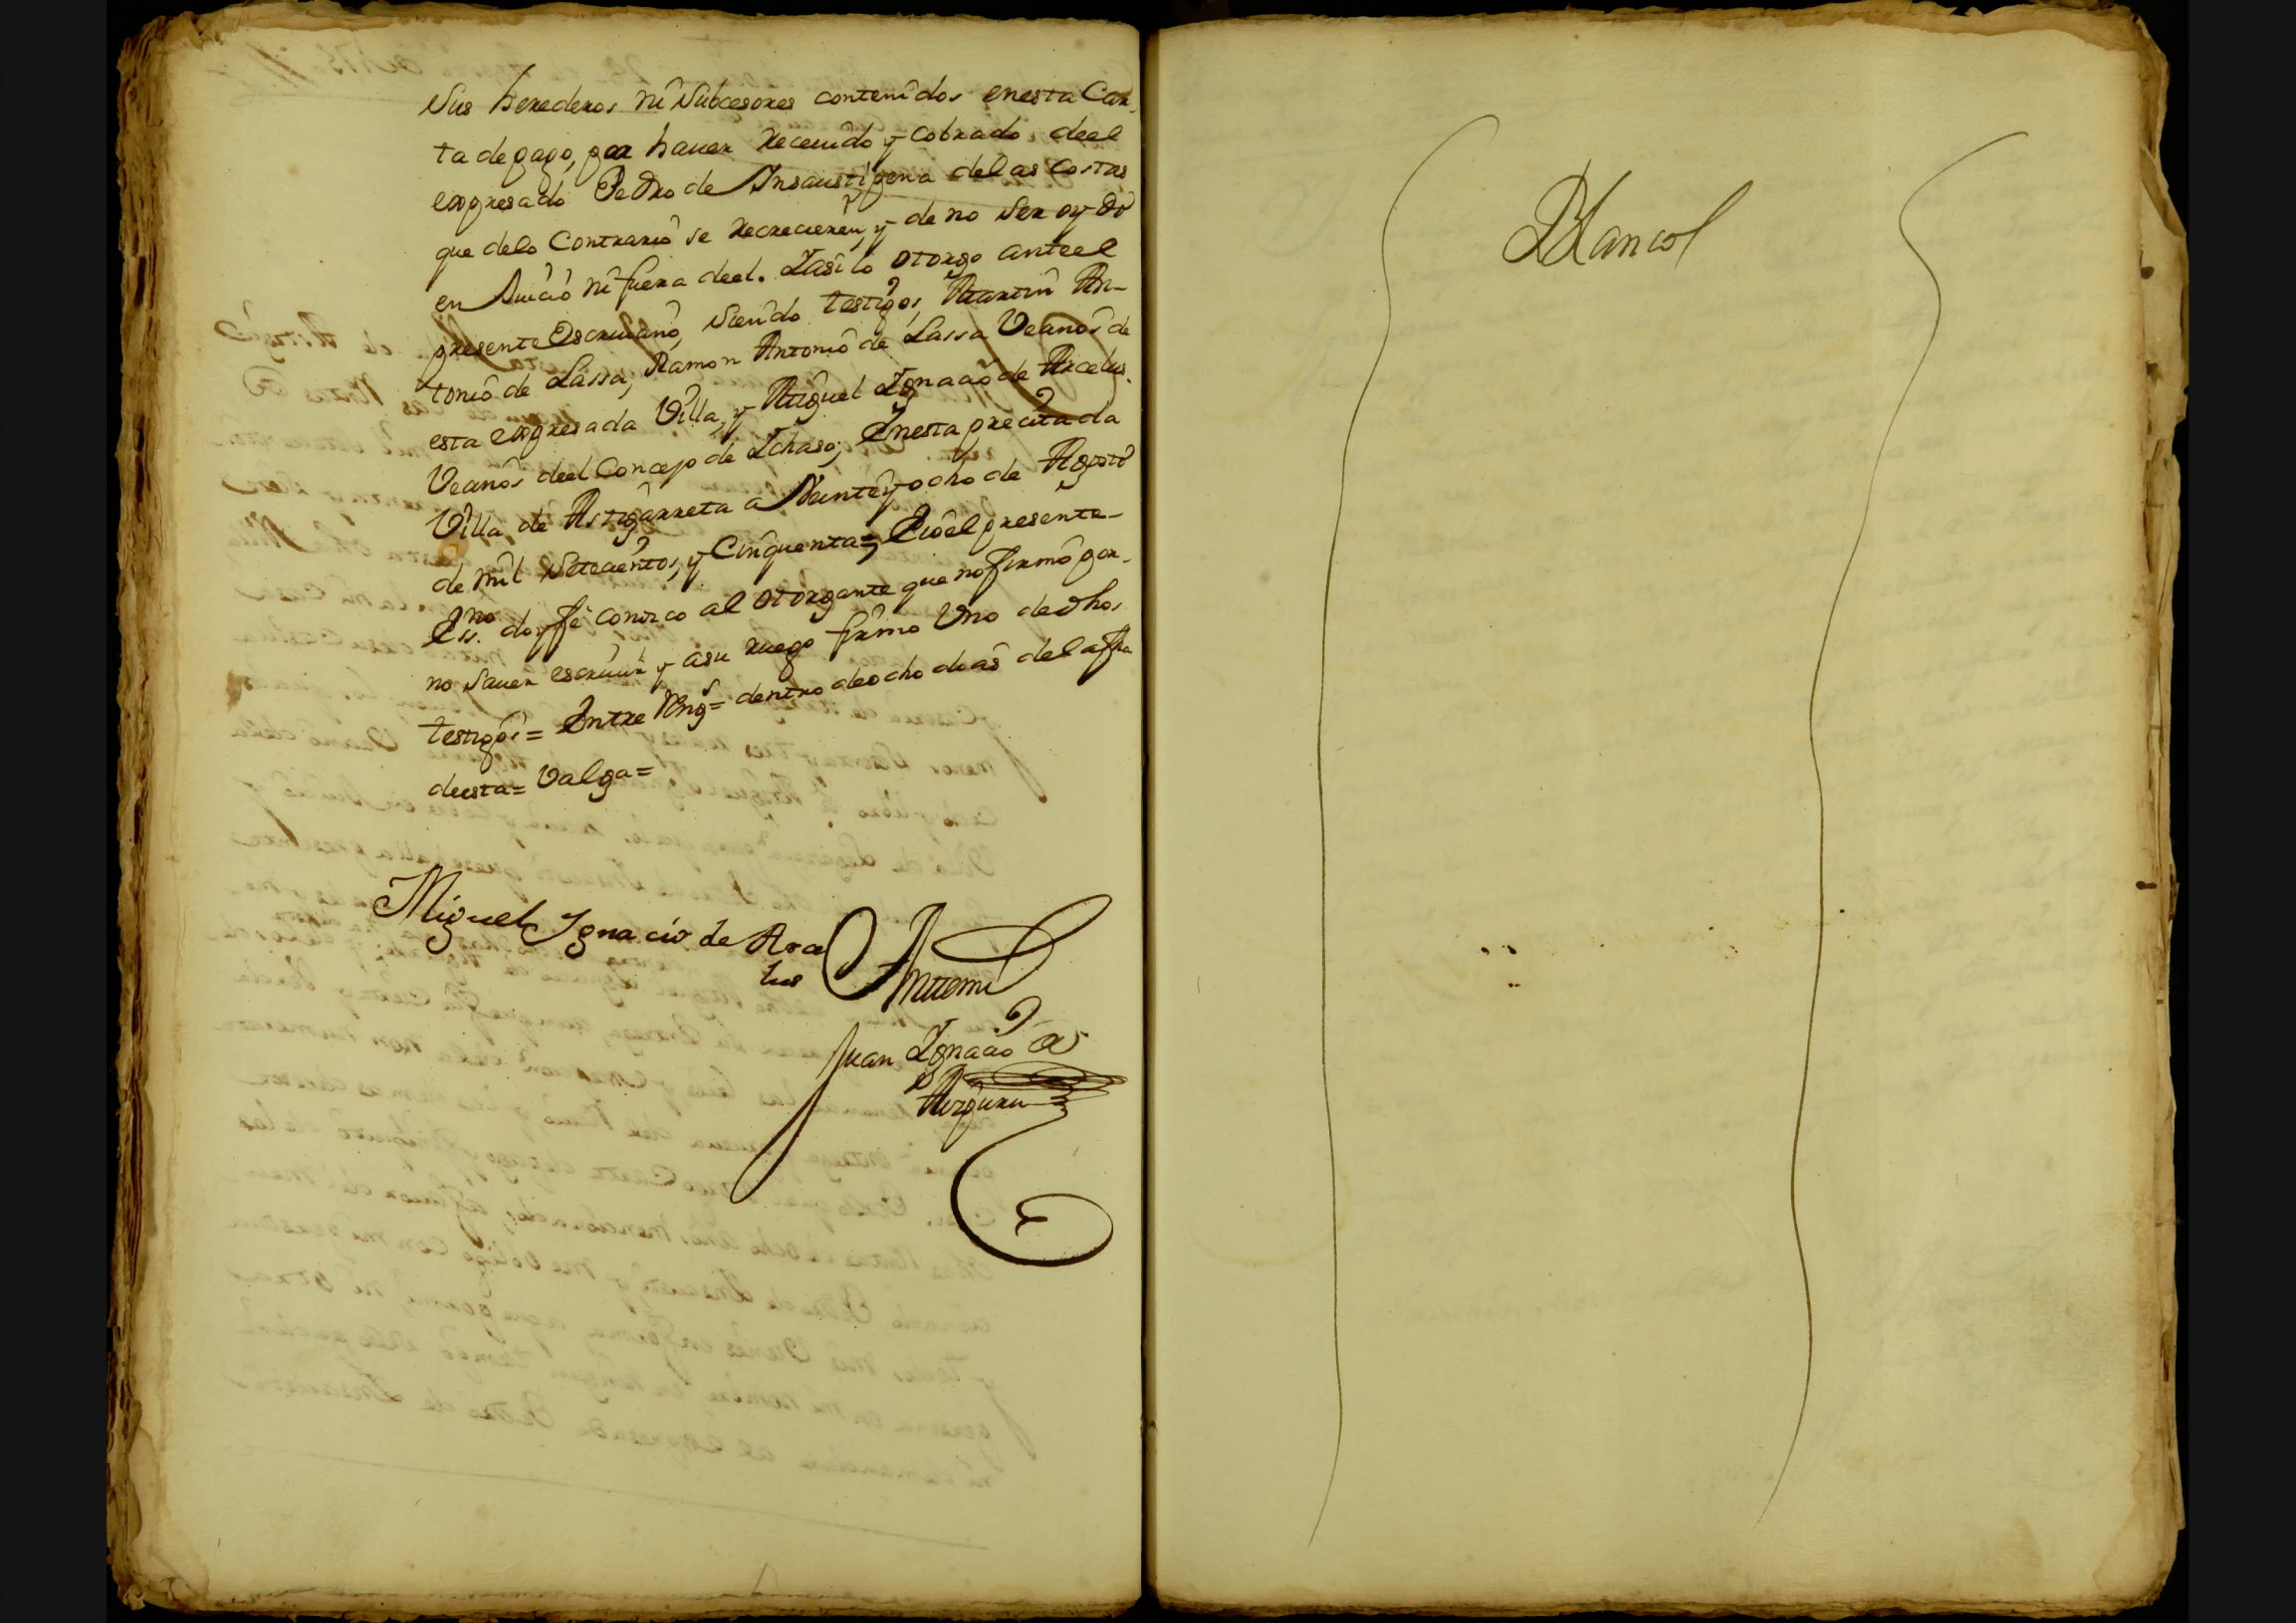 sus herederos ni subcesores contenidos enesta Car
ta de pago, por hauer receuido y cobrado deel
expresado Pedro de Insausti pena delas costas
que delo Contrario se recrecieren, y de no ser oydo
en Juicio ni fuera deel. Yasi lo otorgo anteel
presente Escriuano, siendo testigos, Martin An-
tonio de Lassa, Ramon Antonio de Lassa Vecinos de
esta expresada Villa, y Miguel Ignacio de Arcelus.
Vecino deel Concejo de Ichaso; Enesta precitada
Villa de Astigarreta a Veinte y ocho de Agosto
de mil setecientos, y Cinquenta= E yo el presente
Essno. doy fe conozco al otorgante que no firmó por-
no sauer escriuir y asu ruego firmo Uno de dhos
testigos= Entre Rengs= dentro de ocho dias dela fha
deesta= Valga=
Miguel Ignacio de Arce
lus
Antemi
Juan Ignacio de
Aizpuru
Blanco